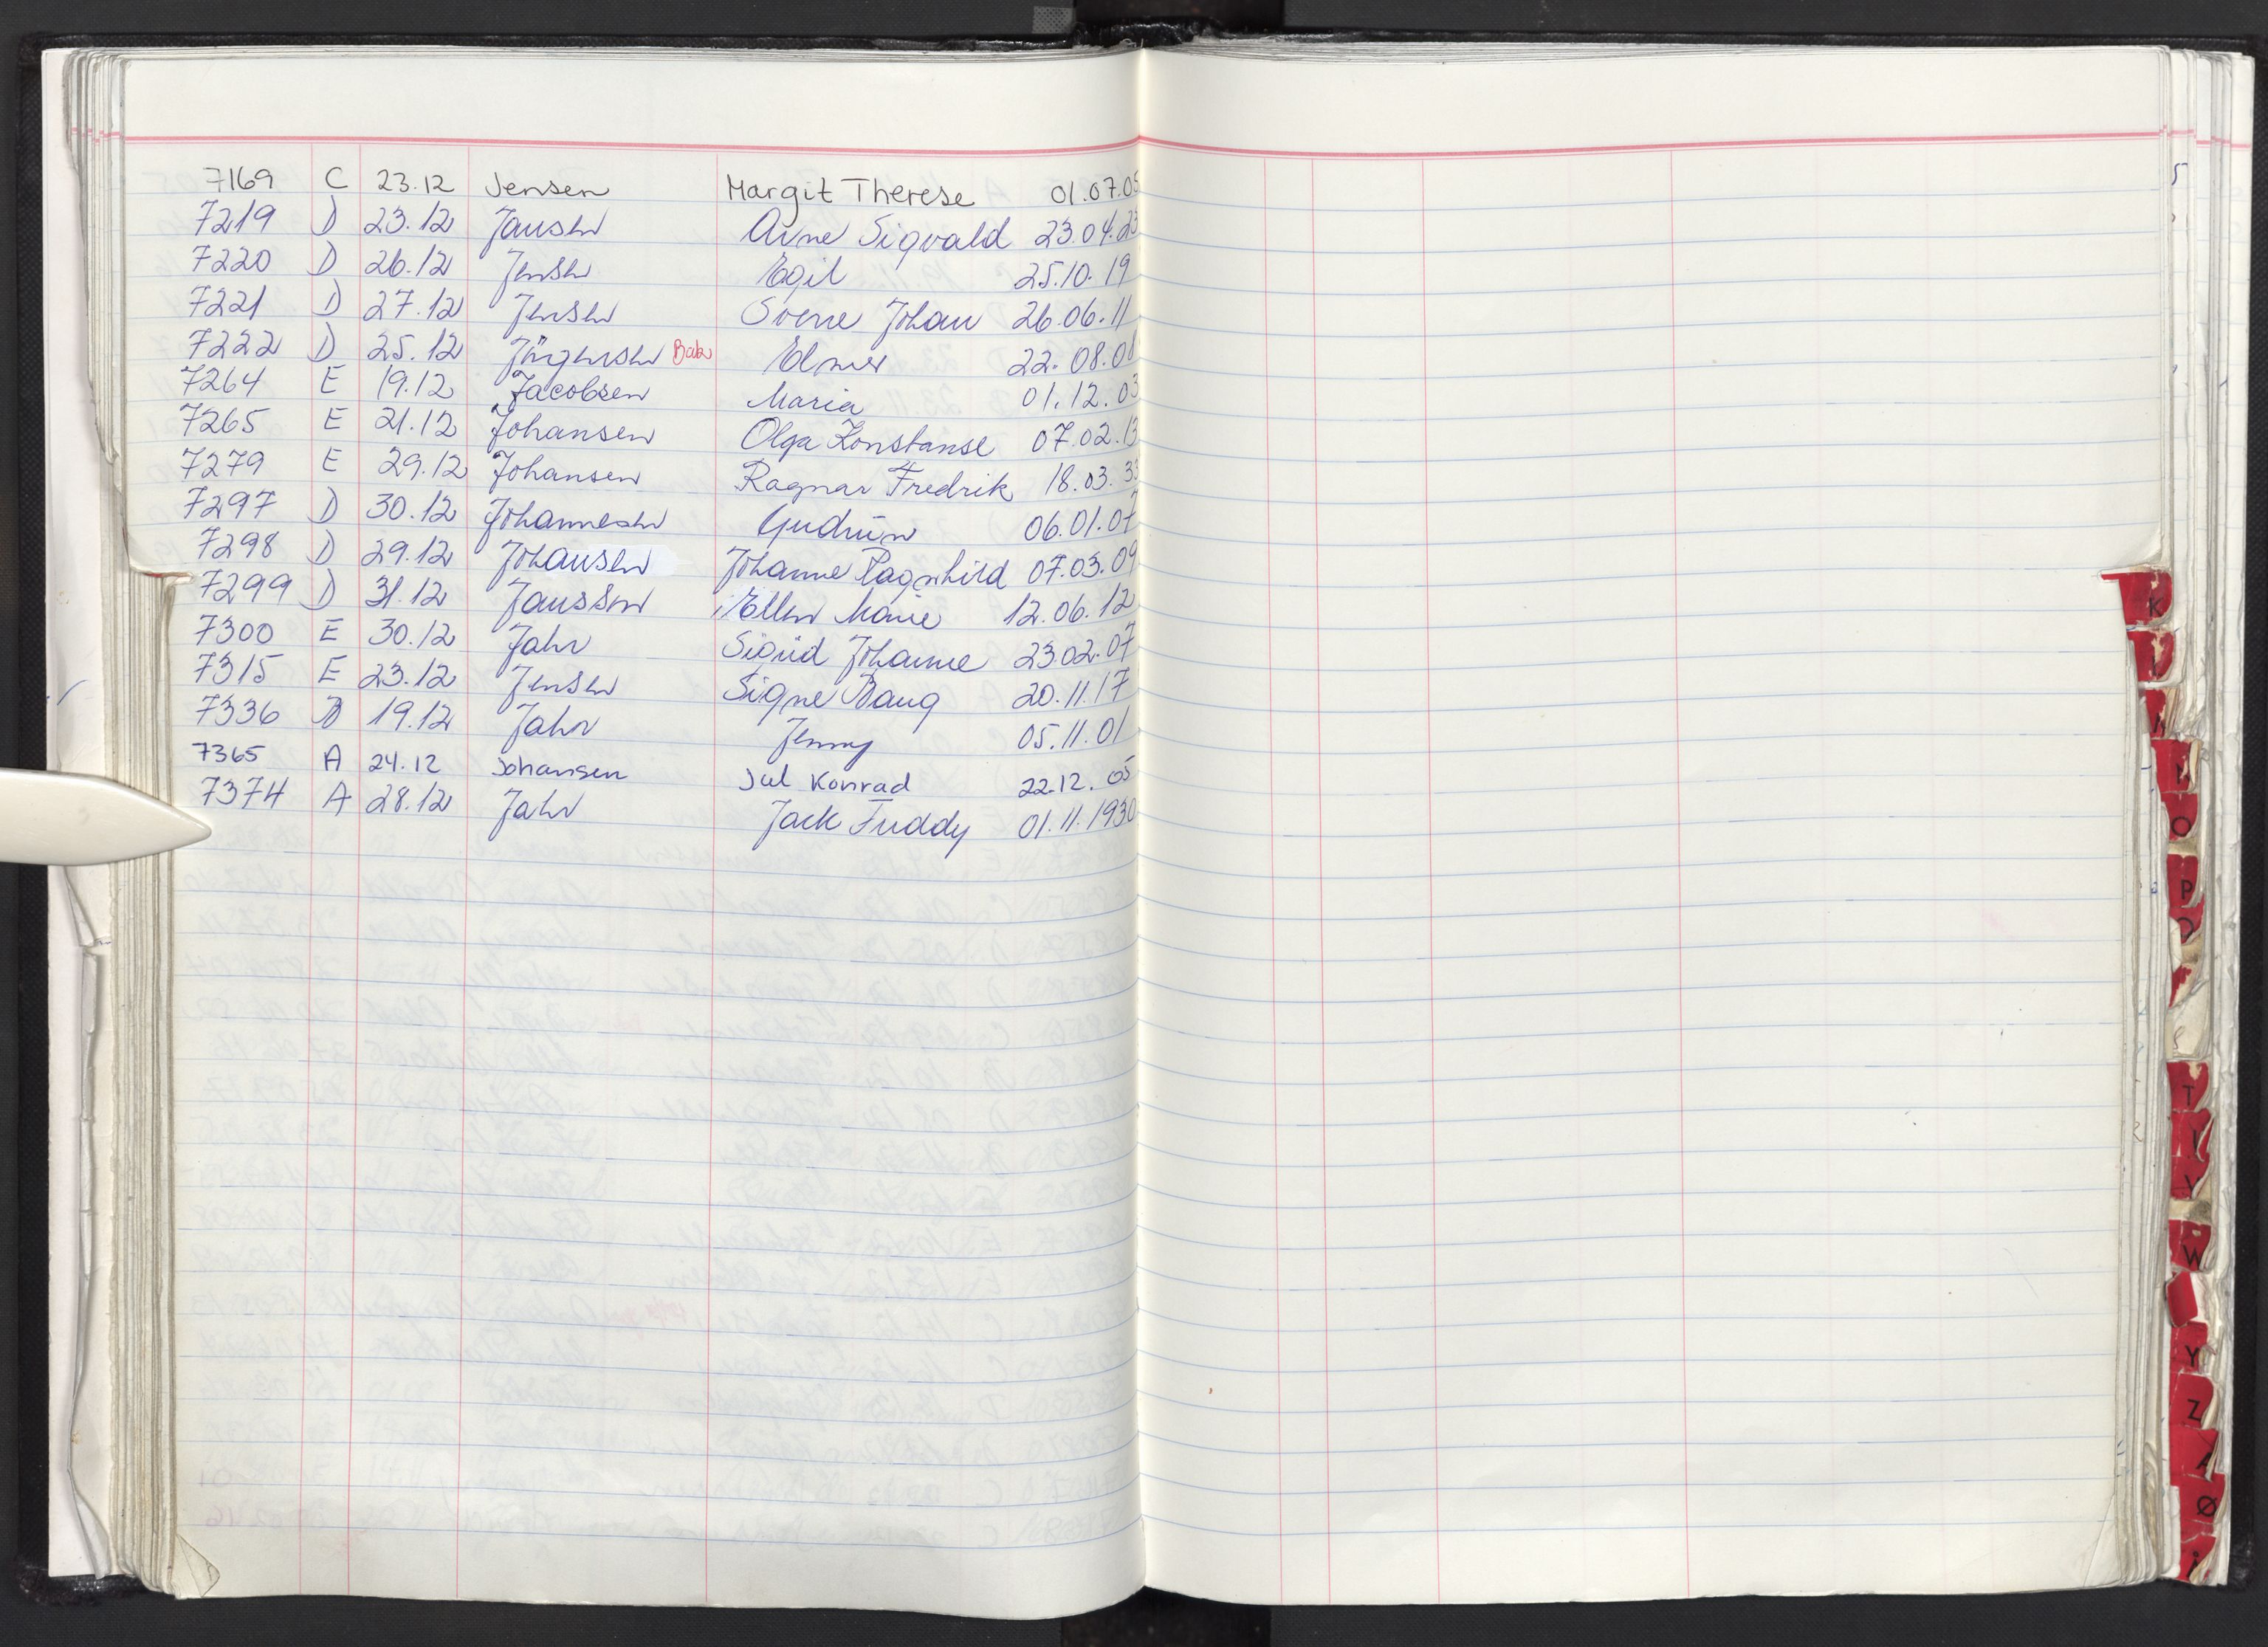 7169 C 23.12 Jensen Margit Therese 01.07.05
7219 D 23.12 Jansen Arne Sigvald 23.04.23
7220 D 26.12 Jensen Egil 25.10.19
7221 D 27.12 Jensen Sverre Johan 26.06.11
7222 D 25.12 Jörgensen Elmer 22.08.08
7264 E 19.12 Jacobsen Maria 01.12.03
7265 E 21.12 Johansen Olga Konstanse 07.02.13
7279 E 29.12 Johansen Ragnar Fredrik 18.03.33
7297 D 30.12 Johannesen Gudrun 06.01.07
7298 D 29.12 Johansen Johanne Ragnhild 07.03.09
7299 D 31.12 Janssen Ellen Marie 12.06.12
7300 E 30.12 Jahr Sigrid Johanne 23.02.07
7315 E 23.12 Jensen Signe Baug 20.11.17
7336 B 19.12 Jahr Jenny 05.11.01
7365 A 24.12 Johansen Jul Konrad 22.12.05
7374 A 28.12 Jahr Jack Fuddy 01.11.1930
K
L
M
N
O
P
T
V
W
Y
Z
Ø